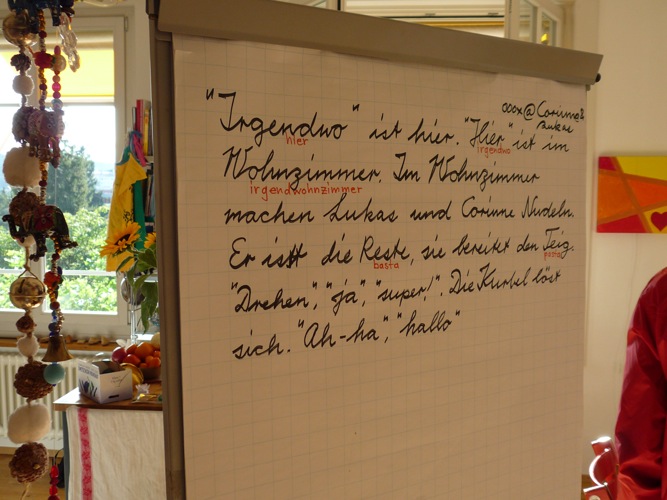 ooox@Corinne&
Lukas
"Irgendwo" ist hier. "Hier" ist im
hier irgendwo
Wohnzimmer. Im Wohnzimmer
irgendwohnzimmer
machen Lukas und Corinne Nudeln.
Er isst die Reste, sie bereitet den Teig.
basta pasta
"Drehen", "ja", "super!". Die Kurbel löst
sich. "Ah-ha", "hallo"